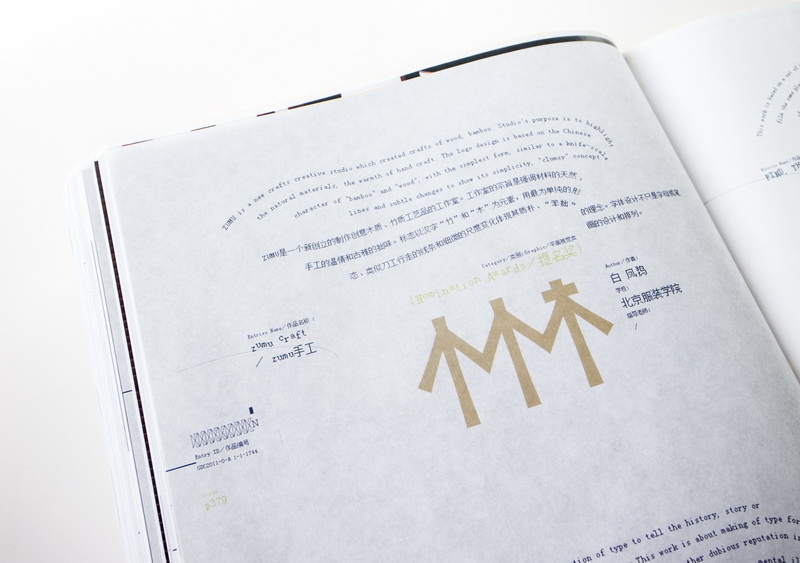 ZUMU is a new crafts creative studio which created crafts of wood, bamboo. Studio's purpose is to highlight
the natural materials, the warmth of hand craft. The logo design is based on the Chinese
character of "bamboo" and "wood", with the simplest form, similar to a knife-scale
lines and subtle changes to show its simplicity, "clumsy" concept.
ZUMU是一个新创立的制作创意木质、竹质工艺品的工作室。工作室的宗旨是强调材料的天然,
手工的温情和古雅的拙味。标志以汉字“竹”和“木”为元素,用最为单纯的形
态、类似刀工行走的线条和细微的尺度变化体现其质朴、“笨拙”
的理念。字体设计不只是字母或笔
画的设计和排列。
Category/类别:Graphic/平面视觉类
(Nomination Awards/提名奖)
Author/作者:
学校:
北京服装学院
指导老师:
/
Entries Name/作品名称:
zumu craft
/ zumu手工
Entry ID/作品编号
GDC2011-D-A 1-1-1744
p379
This work is based on a set of
film the same
tion of type to tell the history, story or
This work is about making of type for
ther dubious reputation i
mental il